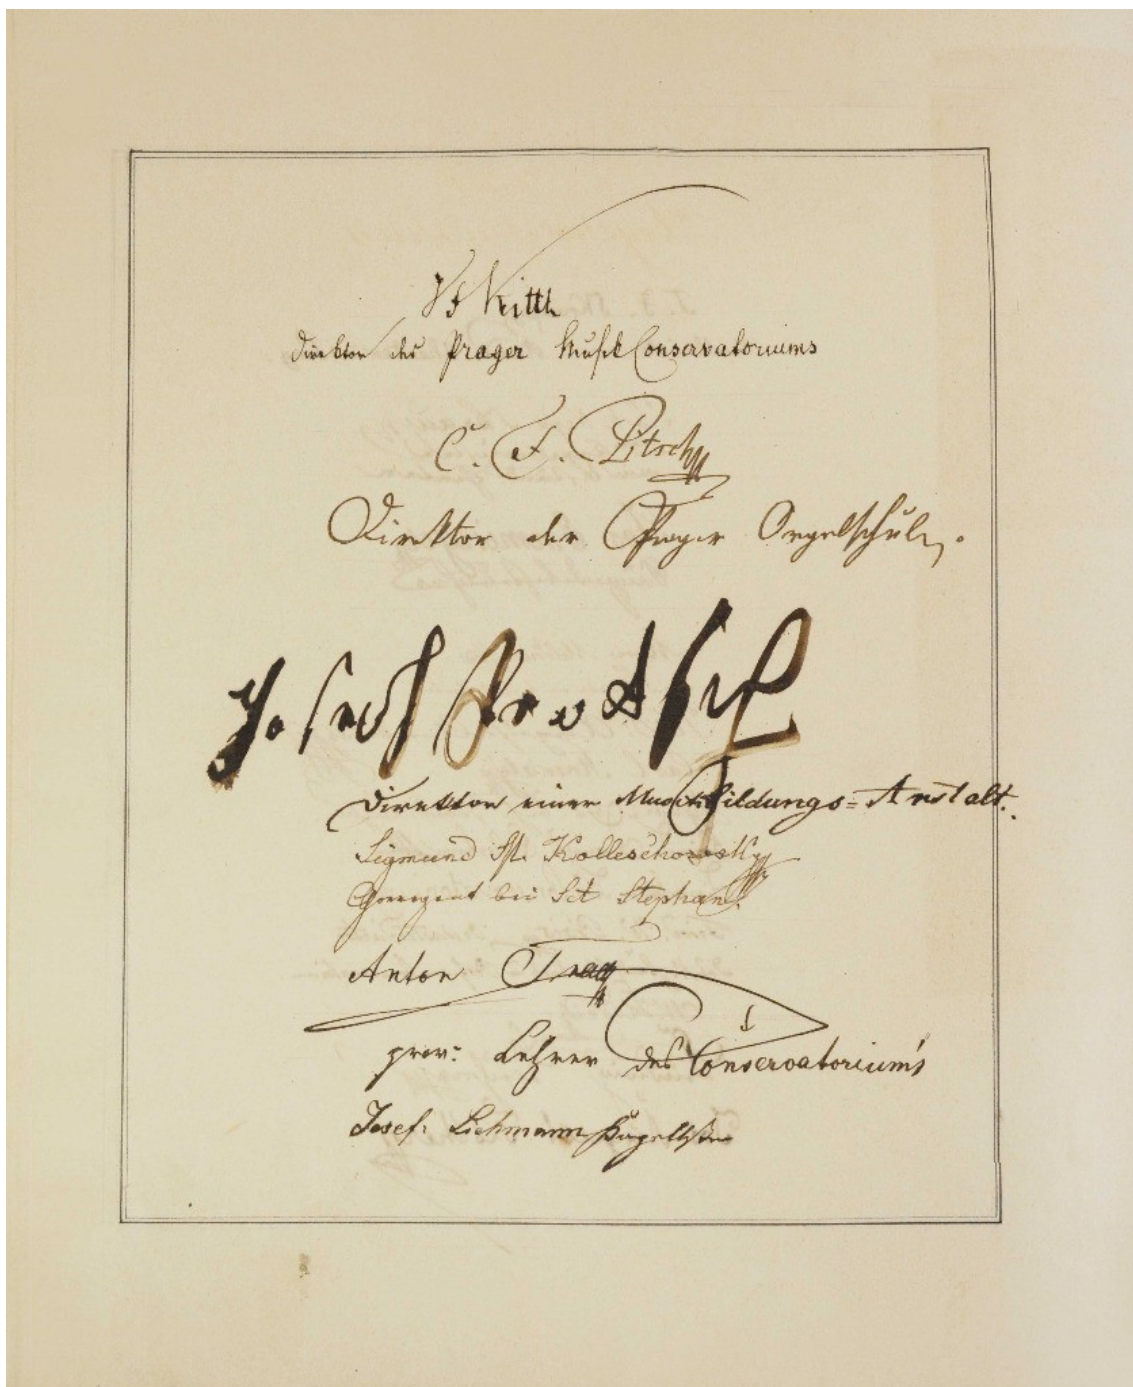 J F Kittl
Direktor des Prager Musik Conservatoriums
C. F. Pitsch
Direktor der Prager Orgelschule.
Joseph Proksch
Direktor einer Musikbildungs=Anstalt.
Sigmund Kolleschowsky
Chorregent bei Sct Stephan.
Anton Trag
prov: Lehrer des Conservatorium's
Josef